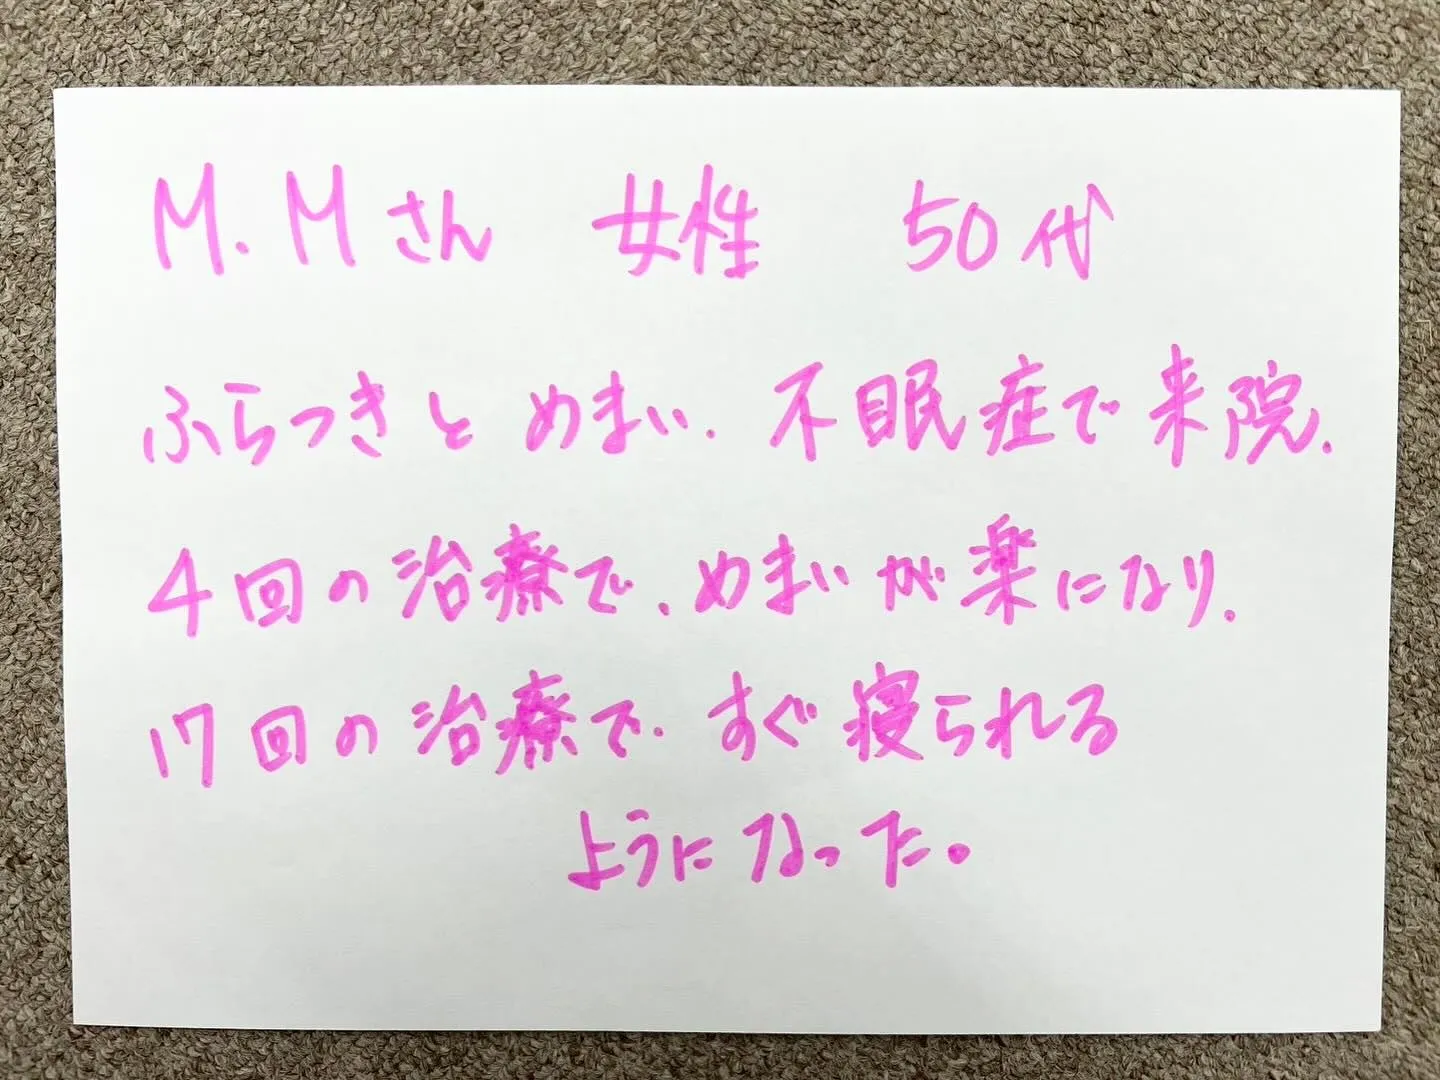 M.Mさん 女性 50代
ふらつきとめまい.不眠症で来院.
4回の治療で.めまいが楽になり.
17回の治療で.すぐ寝られる
ようになった。